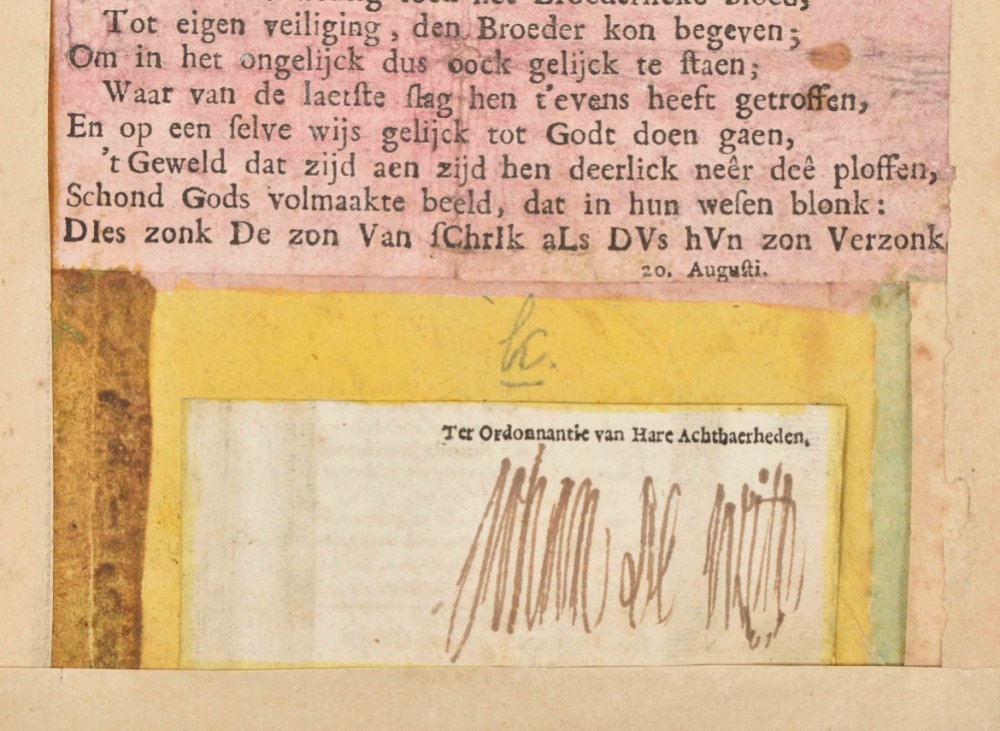 Broederlicke bloed,
Tot eigen veiliging, den Broeder kon begeven;
Om in het ongelijck dus oock gelijck te ſtaen;
Waar van de laetſte ſlag hen t'evens heeft getroffen,
En op een ſelve wijs gelijck tot Godt doen gaen,
't Geweld dat zijd aen zijd hen deerlick neêr deê ploffen,
Schond Gods volmaakte beeld, dat in hun weſen blonk:
DIes zonk De zon Van ſChrIk aLs DVs hVn zon Verzonk
20. Auguſti.
k.
Ter Ordonnantie van Hare Achtbaerheden.
Johan de Witt